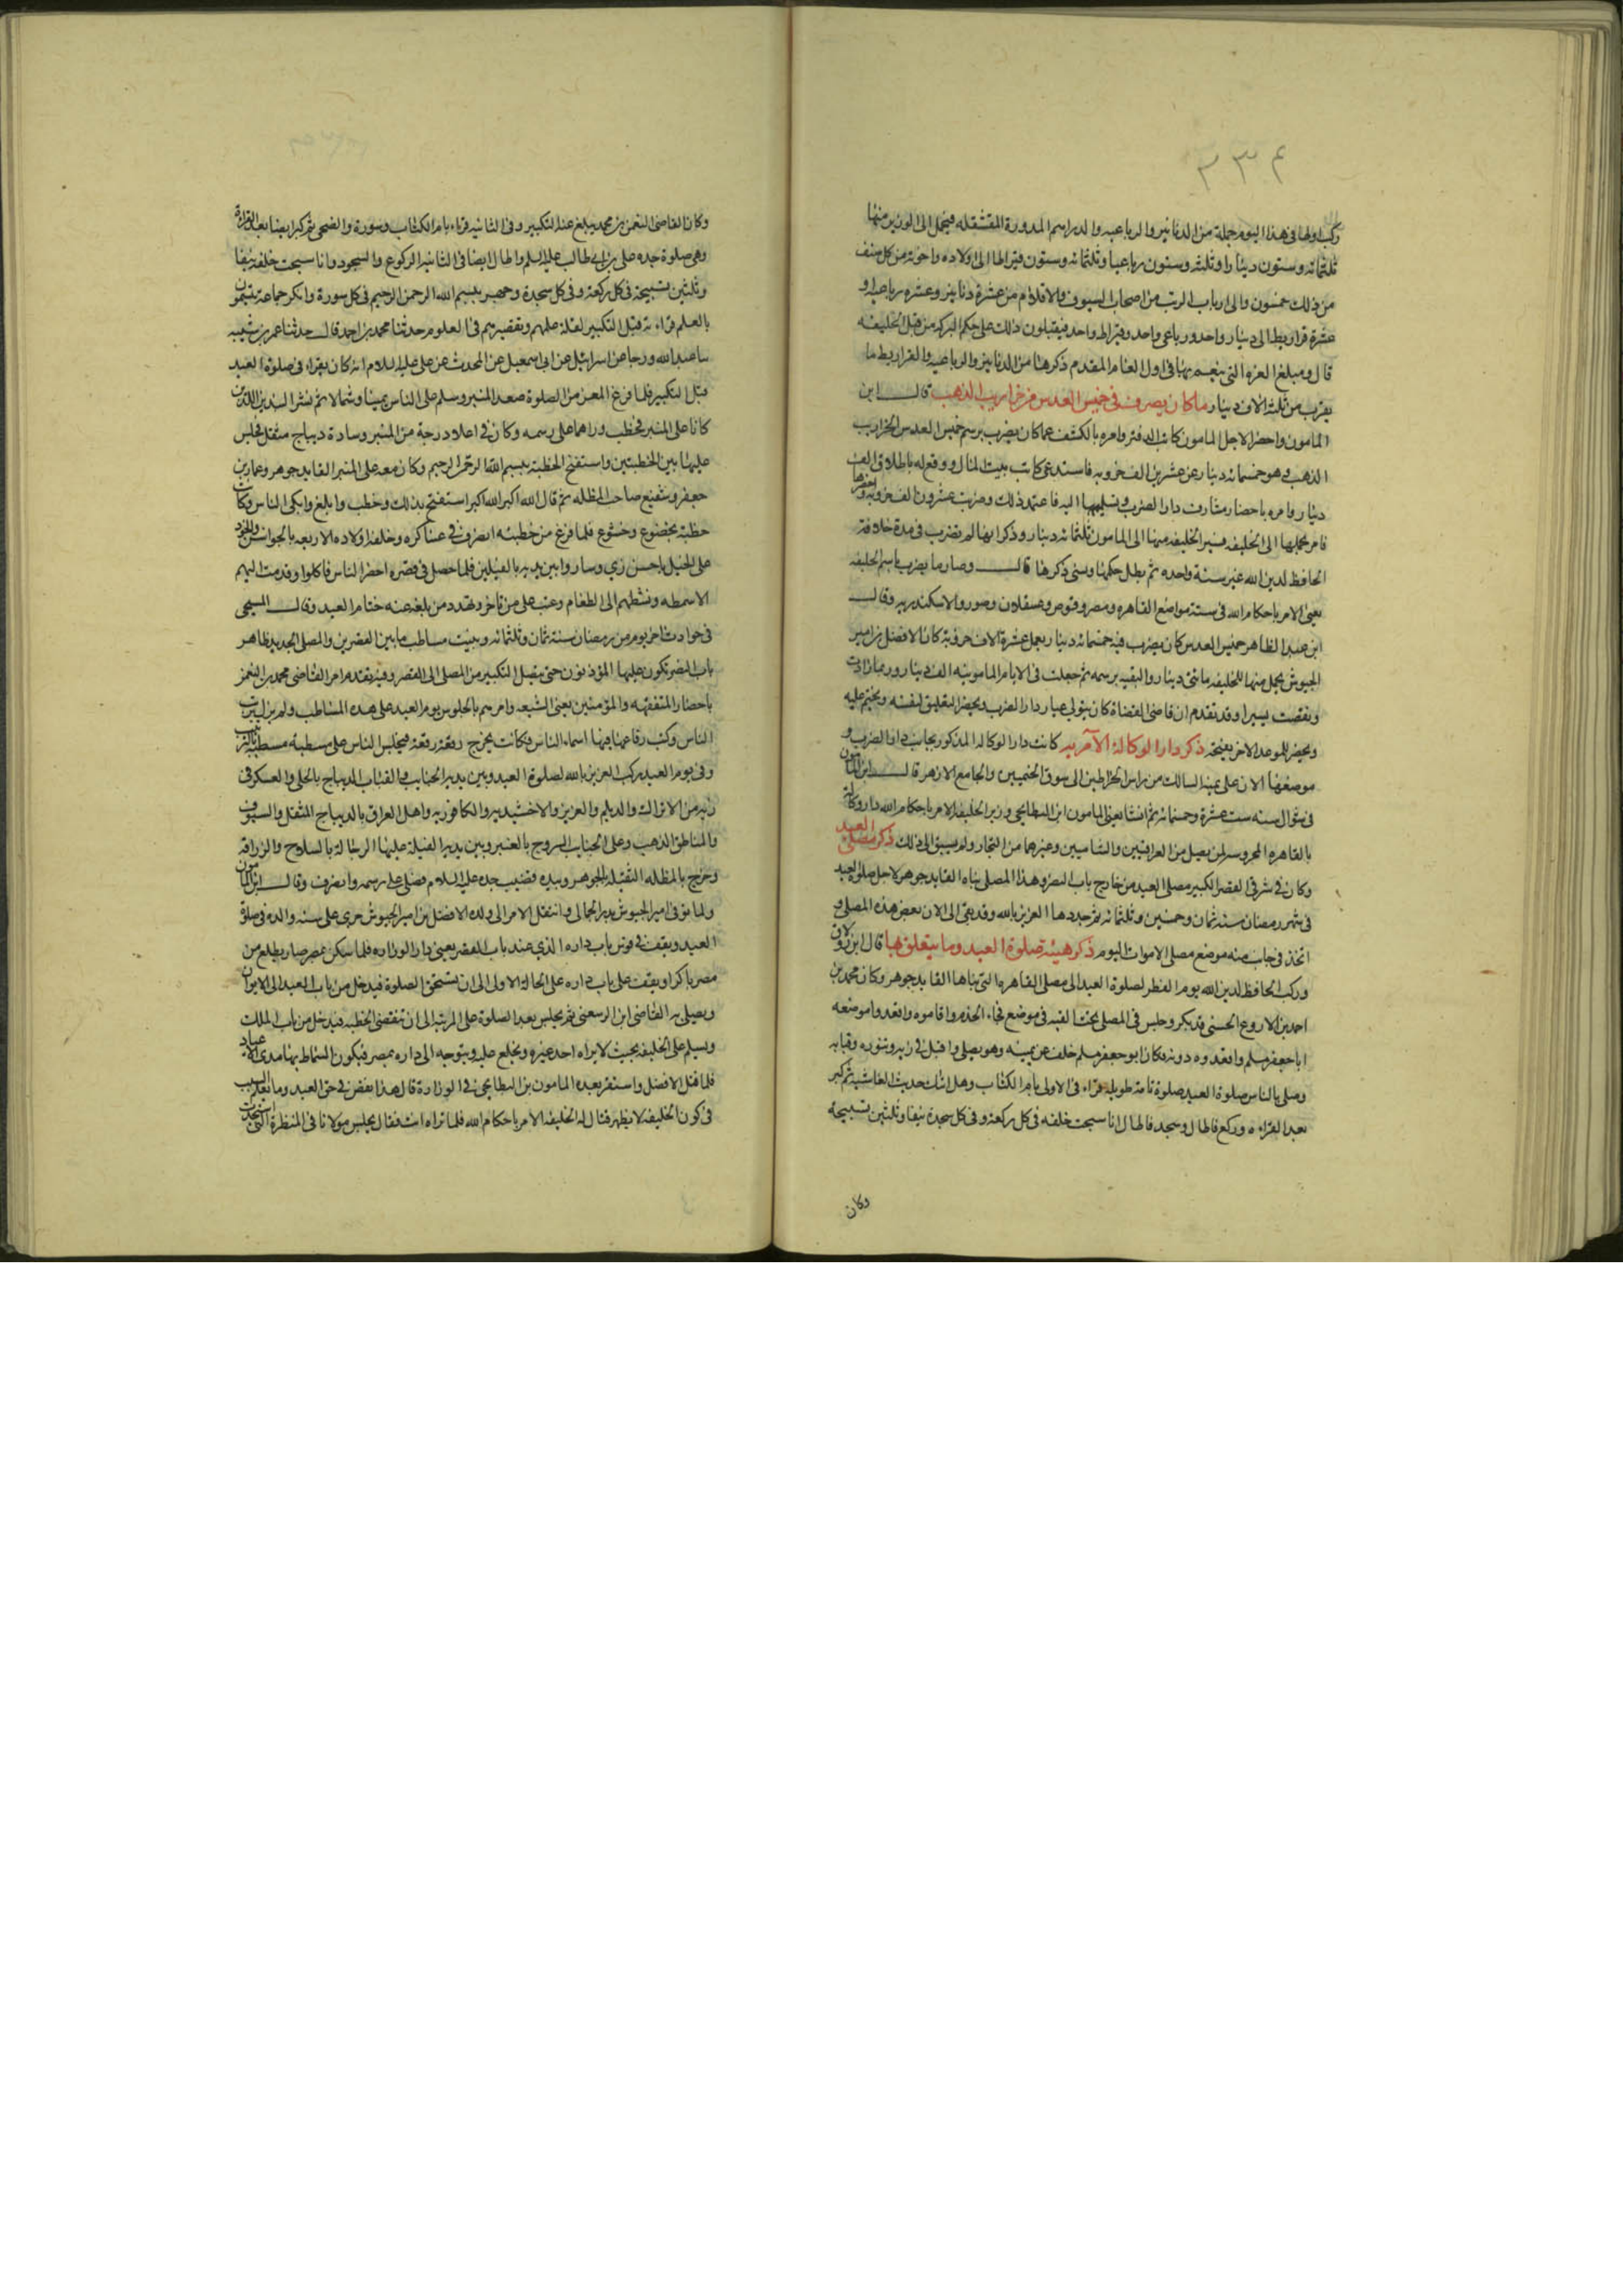 ٣٣٤
ركب اولها فى هذا اليوم جملة من الدنانير والرباعيه والدراهم المدورة المقشقله فيحمل الى الوزير منها
ثلثمائه وستون دينارا وثلثمائه وستون رباعيا وثلثمائه وستون قيراطا الى اولاده واخوته من كل صنف
من ذلك خمسون والى ارباب الرتب من اصحاب السيوف والاقلام من عشرة دنانير وعشره رباعيه و
عشرة قراريط الى دينار واحد ورباعى واحد وقيراط واحد فيقبلون ذلك على حكم البركه من قبل الخليفه
قال ومبلغ الغره التى ينعم بها فى اول العام المقدم ذكرها من الدنانير والرباعيه والقراريط ما
يقرب من ثلثة الاف دينار ما كان يصرف فى خميس العدس من خراريب الذهب قال ابن
المامون واحضر الاجل المامون كاتب الدفتر وامره بالكشف عما كان يضرب برسم خميس العدس الخراريب
الذهب وهو خمسمائه دينار عن عشرين الف خروبه فاستدعى كاتب بيت المال ووقع له باطلاق الف
دينار وامره باحضار مشارف دار الضرب وتسليمها اليه فاعتمد ذلك وضربت عشرون الف خروبه واحضرها
فامر بحملها الى الخليفه فسير الخليفه منها الى المامون ثلثمائه دينار وذكر انها لم تضرب فى مدة خلافة
الحافظ لدين الله غير سنة واحده ثم بطل حكمها ونسى ذكرها قال وصار ما يضرب باسم الخليفه
يعنى الامر باحكام الله فى ستة مواضع القاهره ومصر وقوص وعسقلان وصور والاسكندريه وقال
ابن عبد الظاهر خميس العدس كان يضرب فيه خمسمائه دينار يعمل عشرة الاف خروبة كان الافضل بن امير
الجيوش يحمل منها للخليفه مائتى دينار والبقيه برسمه ثم جعلت فى الايام المامونيه الف دينار وربما زادت
ونقصت يسيرا وقد تقدم ان قاضى القضاة كان يتولى عيار دار الضرب ويحضر التغليق بنفسه ويختم عليه
ويحضر للموعد الاخر بفتحه ذكر دار الوكالة الآمرية كانت دار الوكاله المذكور بجانب دار الضرب و
موضعها الان على يمنة السالك من راس الخراطين الى سوق الخيميين والجامع الازهر قال ابن المامون
فى شوال سنه ست عشرة وخمسمائه ثم انشا يعنى المامون ابن البطايحى وزير الخليفه الامر باحكام الله دار وكالة
بالقاهره المحروسه لمن يصل من العراقيين والشاميين وغيرهما من التجار ولم يسبق الى ذلك ذكر مصلى العيد
وكان فى شرقى القصر الكبير مصلى العيد من خارج باب النصر وهذا المصلى بناه القايد جوهر لاجل صلوة العيد
فى شهر رمضان سنه ثمان وخمسين وثلثمائه ثم جددها العزيز بالله وقد بقى الى الان بعض هذه المصلى و
اتخذ فى جانب منه موضع مصلى الاموات اليوم ذكر هيئة صلوة العيد وما يتعلق بها قال ابن زولاق
وركب الحافظ لدين الله يوم الفطر لصلوة العيد الى مصلى القاهره التى بناها القايد جوهر وكان محمد بن
احمد بن الادرع الحسنى قد بكر وجلس فى المصلى تحت القبه فى موضع فجاء الخدم واقاموه واقعدوا موضعه
ابا جعفر مسلم واقعدوه دونه فكان ابو جعفر مسلم خلف عن يمينه وهو يصلى واقبل فى زيه وبنوده وقبابه
وصلى بالناس صلوة العيد صلوة تامة طويلة قراء فى الاولى بام الكتاب وهل اتاك حديث الغاشيه ثم كبر
بعد القراءه وركع فاطال وسجد فاطال انا سبحت خلفه فى كل ركعة وفى كل سجدة نيفا وثلثين تسبيحه
وكان
وكان القاضى النعمن بن محمد يبلغ عنه التكبير وفى الثانيه قراء بام الكتاب وسورة والضحى ثم كبر ايضا بعد القراءة
وهى صلوة جده على بن ابى طالب عليه السلم واطال ايضا فى الثانيه الركوع والسجود وانا سبحت خلفه نيفا
وثلثين تسبيحة فى كل ركعة وفى كل سجدة وجهر ببسم الله الرحمن الرحيم فى كل سورة وانكر جماعة يتسمون
بالعلم قراءته قبل التكبير لقلة علمهم وتقصيرهم فى العلوم حدثنا محمد بن احمد قال حدثنا عمر بن شيبه
سا عبد الله ورجا عن اسرائيل عن ابى اسمعيل عن المحدث عن على عليه السلام انه كان يقراء فى صلوة العيد
قبل التكبير فلما فرغ المعز من الصلوة صعد المنبر وسلم على الناس يمينا وشمالا ثم نشر البندين اللذين
كانا على المنبر فخطب وراهما على رسمه وكان فى اعلا درجة من المنبر وسادة ديباج مثقل فجلس
عليها بين الخطبتين واستفتح الخطبة ببسم الله الرحمن الرحيم وكان معه على المنبر القايد جوهر وعمار بن
جعفر وشفيع صاحب المظله ثم قال الله اكبر الله اكبر استفتح بذلك وخطب وابلغ وابكى الناس وكانت
خطبة بخضوع وخشوع فلما فرغ من خطبته انصرف فى عساكره وخلفه اولاده الاربعه بالجواشن والخوذ
على الخيل باحسن زى وساروا بين يديه بالفيلين فلما حصل فى قصره احضر الناس فاكلوا وقدمت اليهم
الاسمطه ونشطهم الى الطعام وعتب على من تاخر وتهدد من بلغه عنه ختام العيد وقال المسبحى
فى حوادث اخر يوم من رمضان سنة ثمان وثلثمائه وبنيت مساطب ما بين القصرين والمصلى الجديده ظاهر
باب النصر تكون عليها المؤذنون حتى يتصل التكبير من المصلى الى القصر وفيه تقدم امر القاضى محمد بن النعمن
باحضار المتفقهه والمؤمنين يعنى الشيعه وامرهم بالجلوس يوم العيد على هذه المساطب ولم يزل يرتب
الناس وكتب رقاعا فيها اسماء الناس فكانت تخرج رقعة رقعة فيجلس الناس على مسطبة مسطبة بالترتيب
وفى يوم العيد ركب العزيز بالله لصلوة العيد وبين يديه الجنايب والقباب الديباج بالحلى والعسكر فى
زيه من الاتراك والديلم والعزيزيه والاخشيديه والكافوريه واهل العراق بالديباج المثقل والسيوف
والمناطق الذهب وعلى الجنايب السروج بالعنبر وبين يديه الفيلة عليها الرجالة بالسلاح والزراقه
وخرج بالمظله الثقيلة بالجوهر وبيده قضيب جده عليه السلام فصلى على رسمه وانصرف وقال ابن المامون
ولما توفى امير الجيوش بدر الجمالى وانتقل الامر الى ولده الافضل بن امير الجيوش جرى على سنه والده فى صلوة
العيد ويقف فى قوس باب داره الذى عند باب القصر يعنى دار الوزاره فلما سكن بمصر صار يطلع من
مصر باكرا ويقف على باب داره على الحالة الاولى الى ان تستحق الصلوة فيدخل من باب العيد الى الايوان
ويصلى به القاضى ابن الرسعنى ثم يجلس بعد الصلوة على المرتبه الى ان تنقضى الخطبه فيدخل من باب الملك
ويسلم على الخليفه بحيث لا يراه احد غيره ويخلع عليه ويتوجه الى داره بمصر فيكون السماط بها مدى الاعياد
فلما قتل الافضل واستقر بعده المامون بن البطايحى فى الوزارة قال هذا نقص فى حق العيد وما يعلم السبب
فى كون الخليفه لا يظهر فقال له الخليفه الامر باحكام الله فما تراه انت فقال يجلس مولانا فى المنظرة التى استجدت